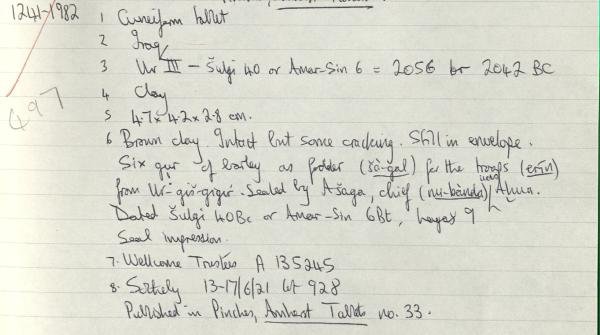 1241-1982
497
1 Cuneiform tablet
2 Iraq
3 Ur III - Šulgi 40 or Amar-Sin 6 = 2056 or 2042 BC
4 Clay
5 4.7 x 4.2 x 2.8 cm.
6 Brown clay. Intact but some cracking. Still in envelope.
Six gur of barley as fodder (šà-gal) for the troops (erín)
from Ur-giš-gigir. Sealed by Ašaga, chief (nu-bànda)
Dated Šulgi 40Bc or Amar-Sin 6Bt, 9
Seal impression.
7. Wellcome Trustees A 135245
8. Sotheby 13-17/6/21 lot 928
Published in Pinches, Amherst Tablets no. 33.